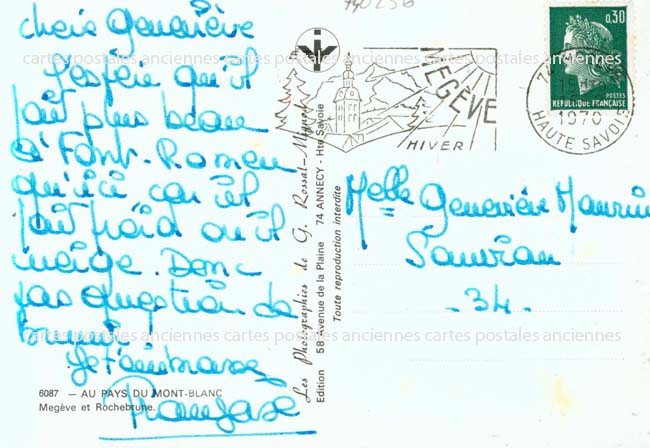 740256
chère Geneviève
J'espère qu'il
fait plus beau
à Font-Romeu
qu'ici car il
fait froid ou il
neige. Donc
pas question de
Je t'embrasse
Françoise
6087 - AU PAYS DU MONT-BLANC
Megève et Rochebrune.
Les Photographies de G. Rossat-Mignod
Edition 58 Avenue de la Plaine 74 ANNECY - Hte Savoie
Toute reproduction interdite
MEGÈVE
HIVER
74
1970
HAUTE SAVOIE
0,30
POSTES
REPUBLIQUE FRANÇAISE
Melle Geneviève
Sauvian
- 34 -
cartes postales anciennes cartes postales anciennes cartes postales anciennes
cartes postales anciennes cartes postales anciennes cartes postales anciennes